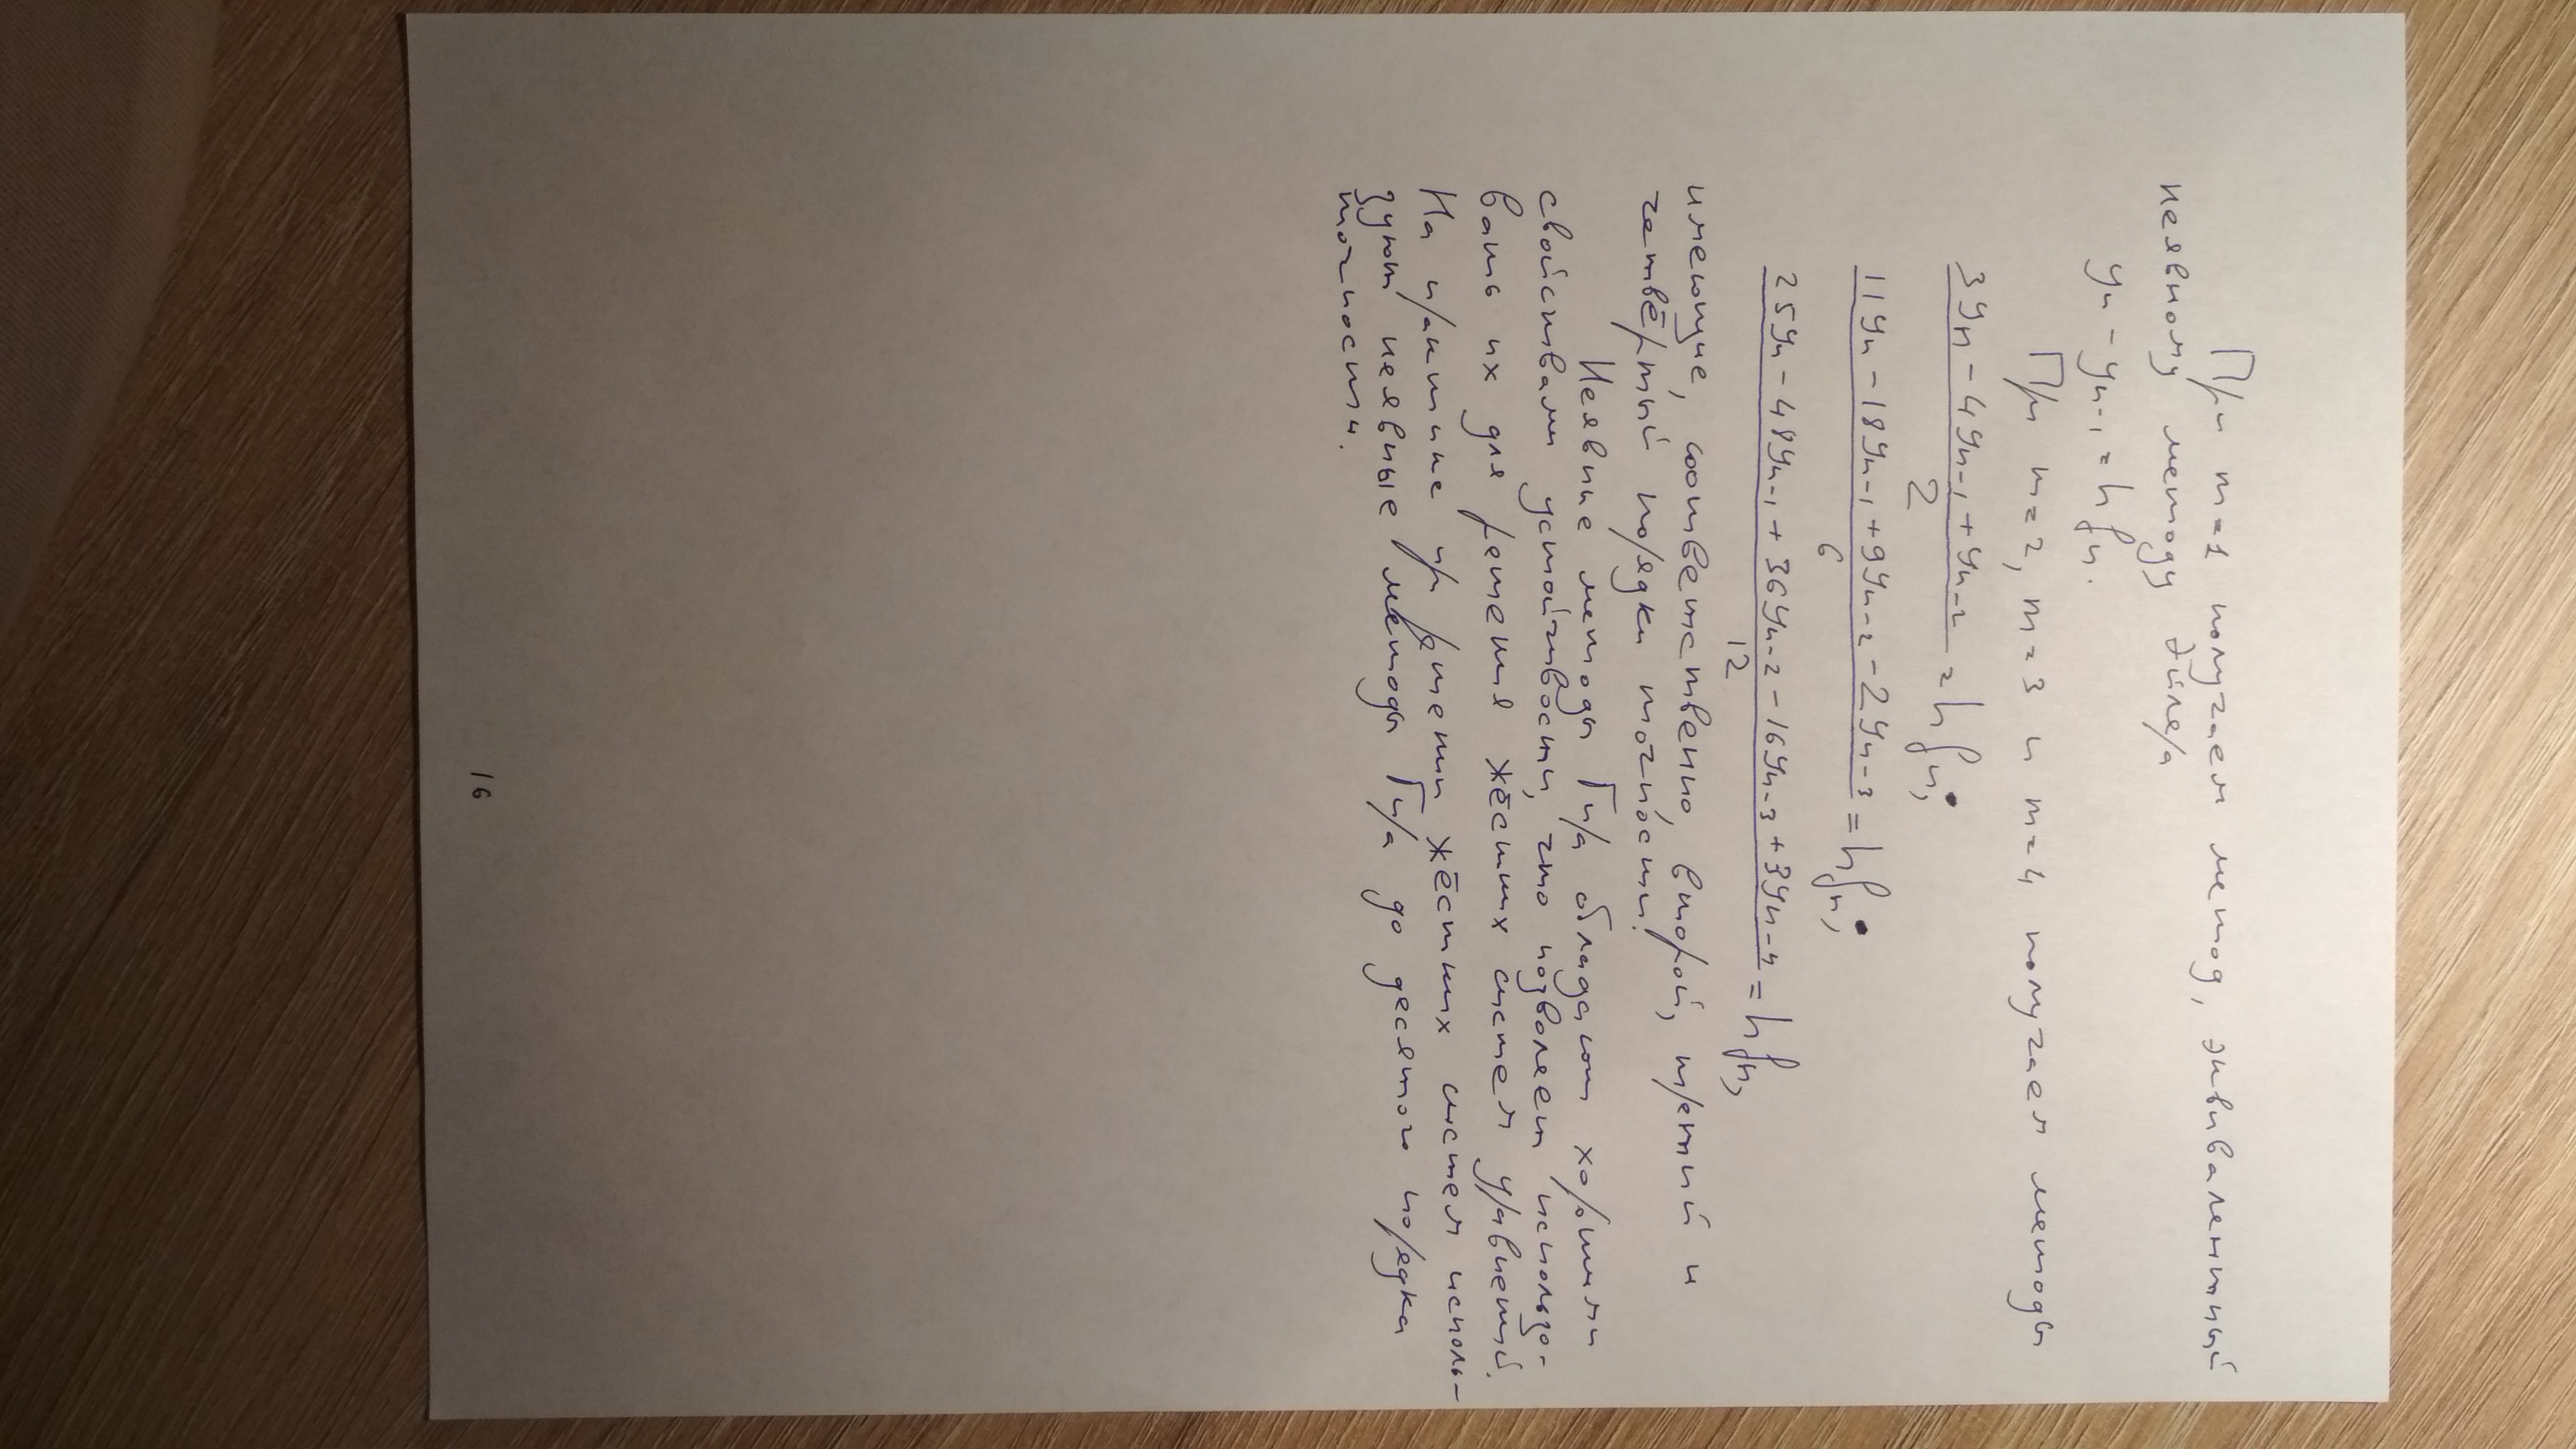 При m=1 получаем метод, эквивалентный
неявному методу Эйлера
yₙ - yₙ₋₁ = hfₙ.
При m=2, m=3 и m=4 получаем методы
(3yₙ - 4yₙ₋₁ + yₙ₋₂)/2 = hfₙ;
(11yₙ - 18yₙ₋₁ + 9yₙ₋₂ - 2yₙ₋₃)/6 = hfₙ;
(25yₙ - 48yₙ₋₁ + 36yₙ₋₂ - 16yₙ₋₃ + 3yₙ₋₄)/12 = hfₙ,
имеющие, соответственно, второй, третий и
четвёртый порядки точности.
Неявные методы Гира обладают хорошими
свойствами устойчивости, что позволяет использо-
вать их для решения жёстких систем уравнений.
На практике при решении жёстких систем исполь-
зуют неявные методы Гира до десятого порядка
точности.
16